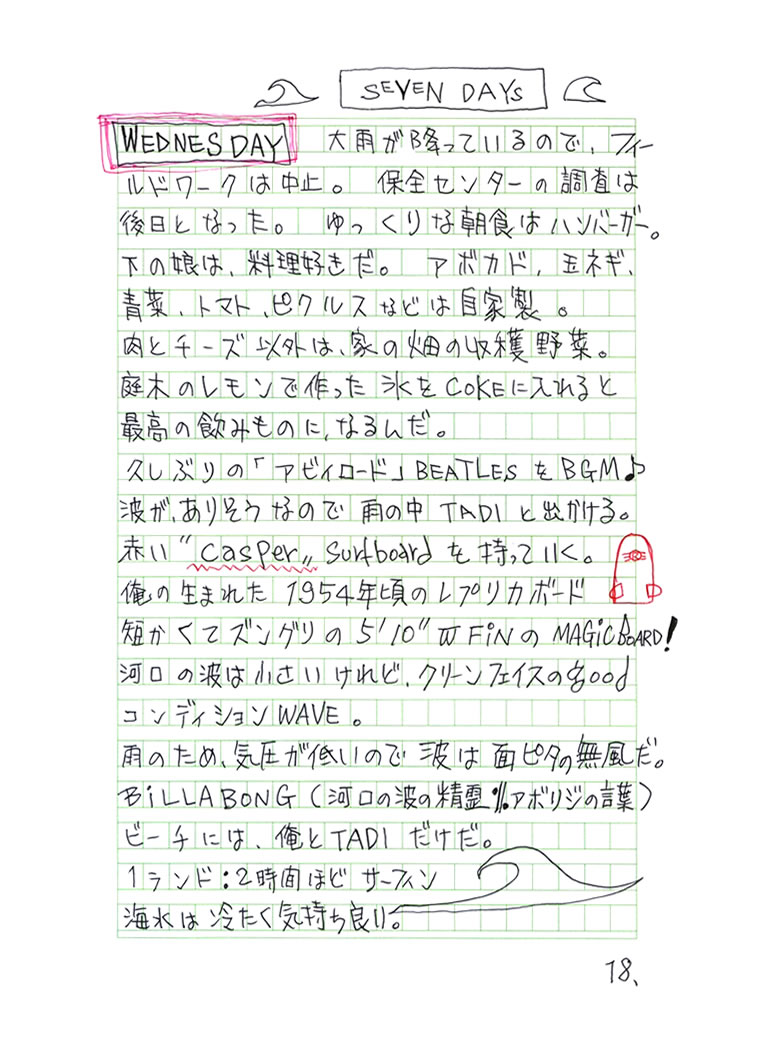 SEVEN DAYS
WEDNESDAY 大雨が降っているので、フィー
ルドワークは中止。 保全センターの調査は
後日となった。 ゆっくりな朝食はハンバーガー。
下の娘は、料理好きだ。 アボカド、玉ネギ、
青菜、トマト、ピクルスなどは自家製。
肉とチーズ以外は、家の畑の収穫野菜。
庭木のレモンで作った氷をCOKEに入れると
最高の飲みものに、なるんだ。
久しぶりの「アビィロード」BEATLESをBGM♪
波が、ありそうなので雨の中TADIと出かける。
赤い"Casper"Surfboardを持っていく。
俺の生まれた1954年頃のレプリカボード
短かくてズングリの5'10"ⅢFiNのMAGiCBOARD!
河口の波は小さいけれど、クリーンフェイスのgood
コンディションWAVE。
雨のため、気圧が低いので波は面ピタの無風だ。
BiLLABONG(河口の波の精霊 アボリジの言葉)
ビーチには、俺とTADIだけだ。
1ランド:2時間ほどサーフィン
海水は冷たく気持ち良い。
18、